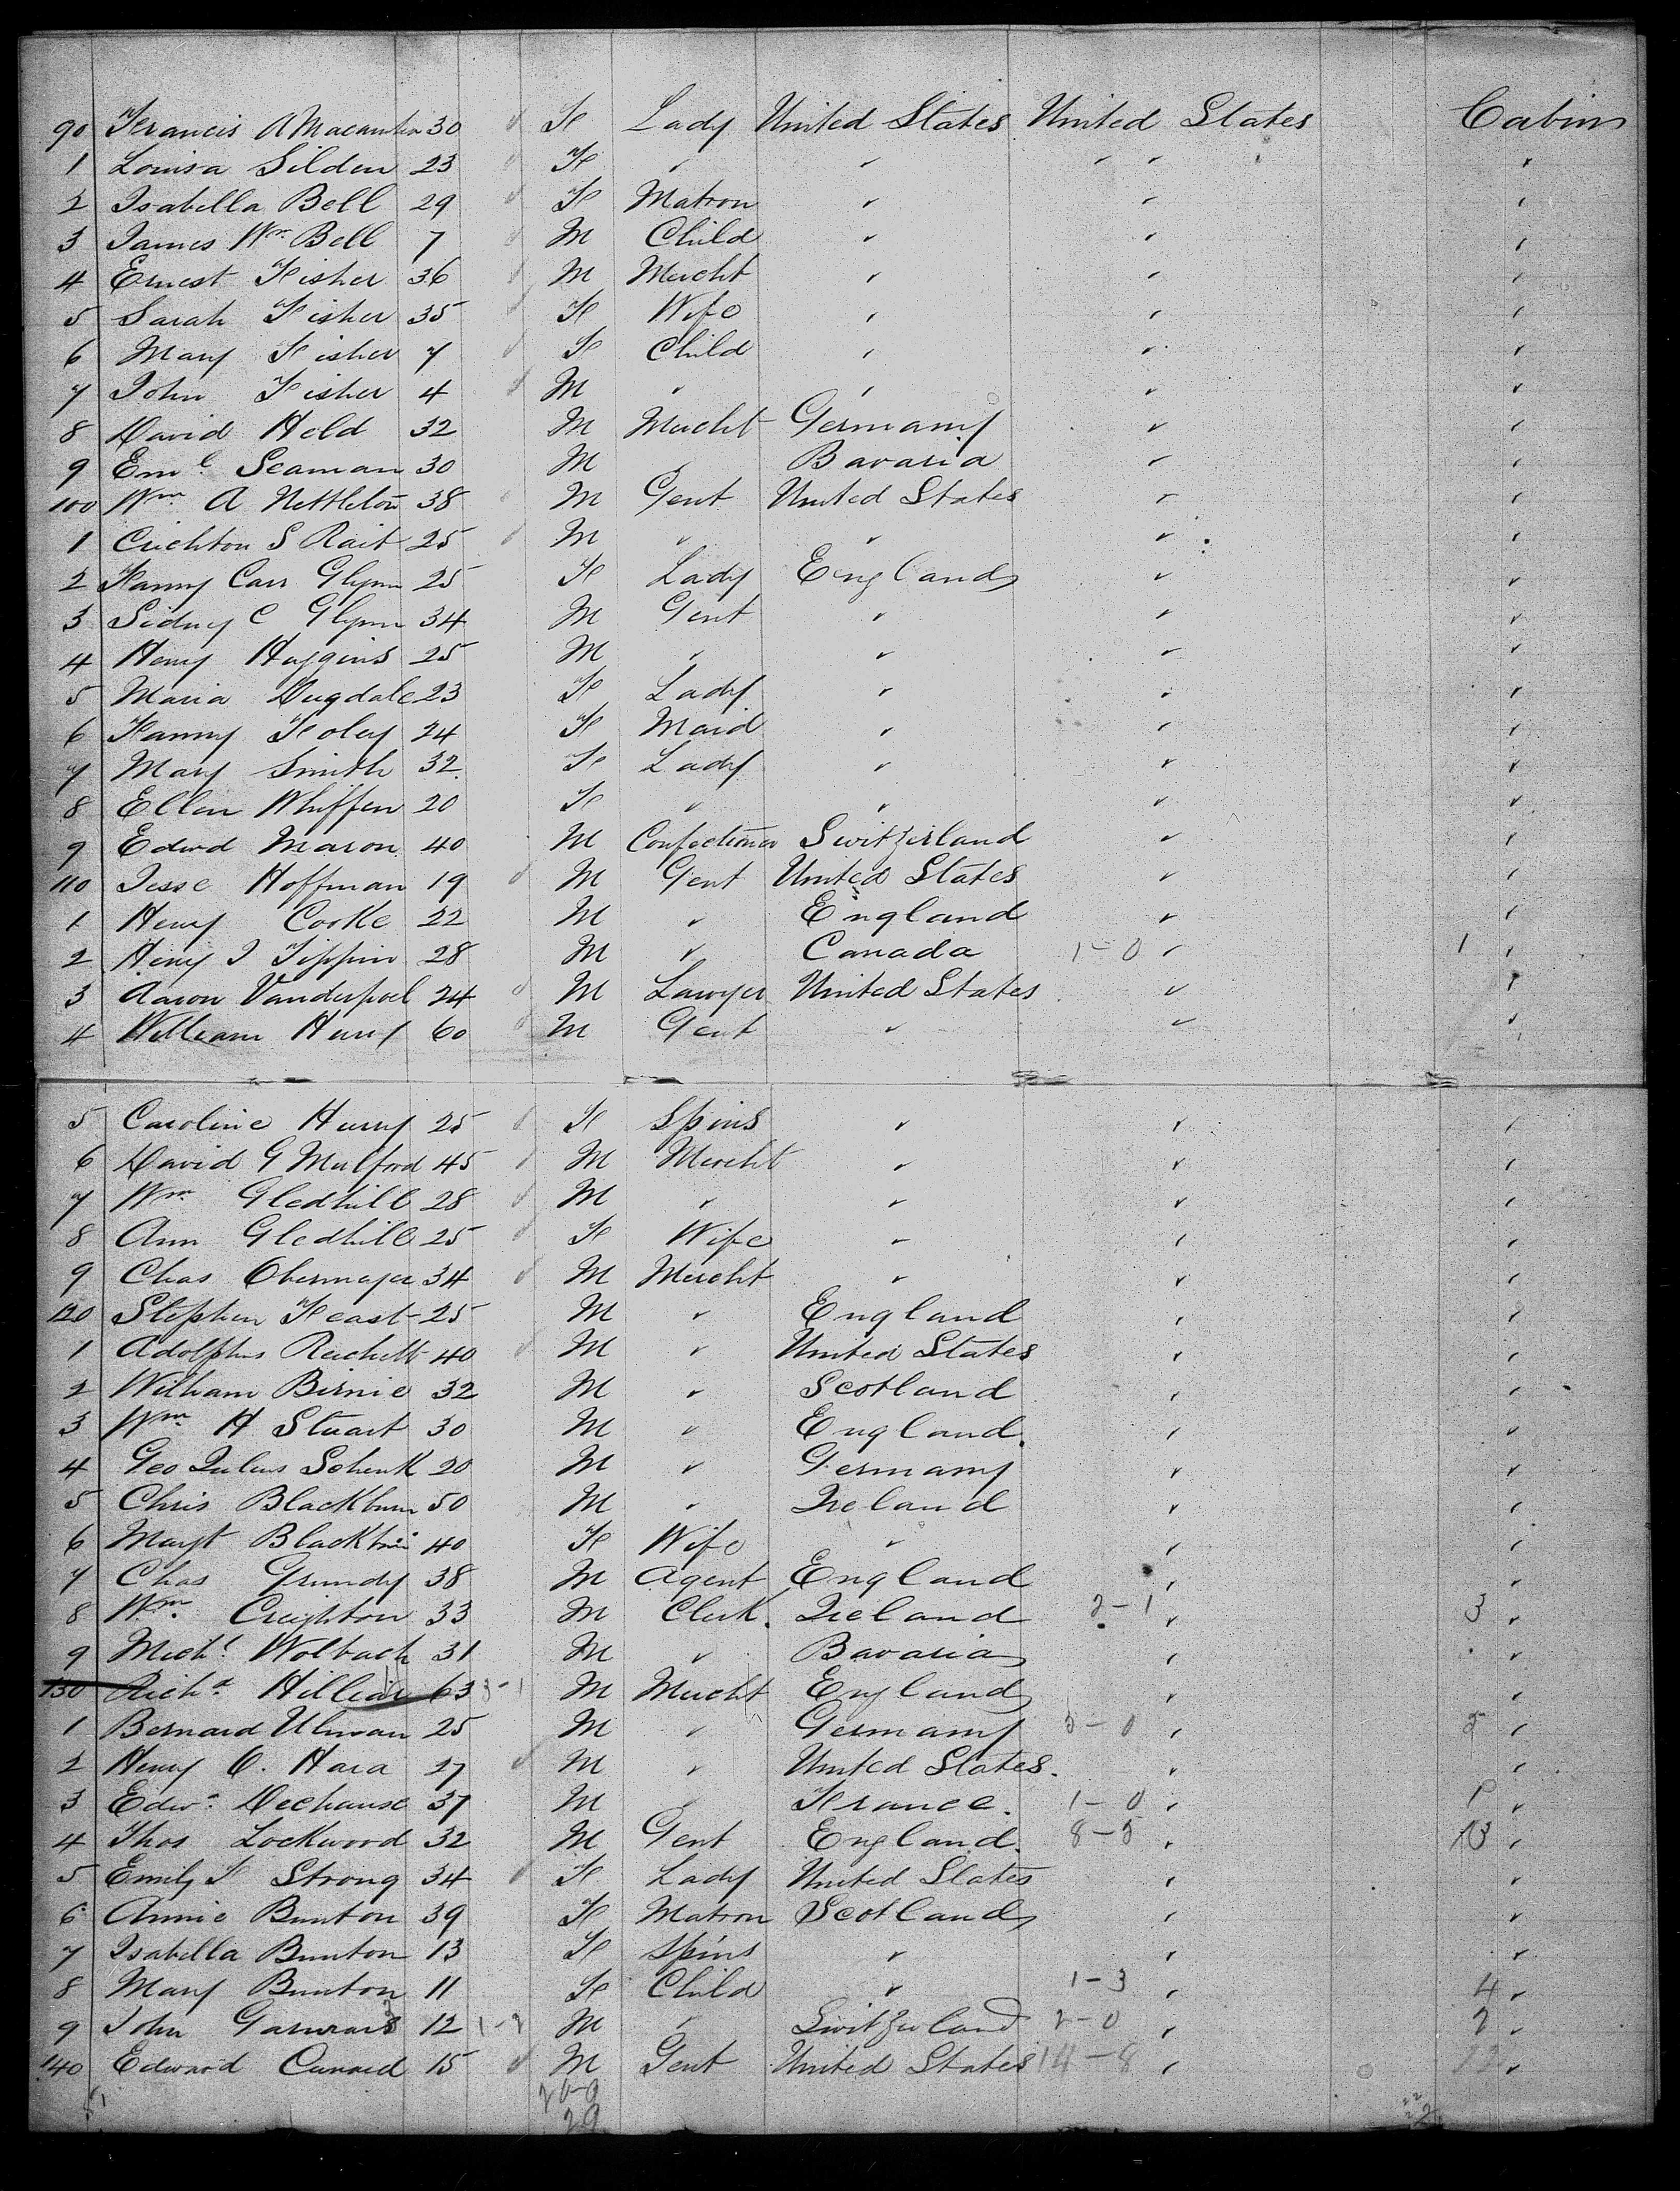 90 Francis A Macaulea 30 F Lady United States United States Cabin
1 Louisa Silden 23 F " " " " "
2 Isabella Bell 29 F Matron " " "
3 James Wm Bell 7 M Child " " "
4 Ernest Fisher 36 M Mercht " " "
5 Sarah Fisher 35 F Wife " " "
6 Mary Fisher 7 F Child " " "
7 John Fisher 4 M " " " "
8 David Held 32 M Mercht Germany " "
9 Eml Seaman 30 M " Bavaria " "
100 Wm A Nettleton 38 M Gent United States " "
1 Crichton S Rait 25 M " " " "
2 Fanny Carr Glynn 25 F Lady England " "
3 Sidney C Glynn 34 M Gent " " "
4 Henry Huggins 25 M " " " "
5 Maria Dugdale 23 F Lady " " "
6 Fanny Foley 24 F Maid " " "
7 Mary Smith 32 F Lady " " "
8 Ellen Whiffen 20 F " " " "
9 Edwd Maron 40 M Confectioner Switzerland " "
110 Jesse Hoffman 19 M Gent United States " "
1 Henry Cooke 22 M " England " "
2 Henry J Tippin 28 M " Canada 1-0 " 1 "
3 Aaron Vanderpoel 24 M Lawyer United States " "
4 William Hurry 60 M Gent " " "
5 Caroline Hurry 25 F Spins " " "
6 David G Mulford 45 M Mercht " " "
7 Wm Gledhill 28 M " " " "
8 Ann Gledhill 25 F Wife " " "
9 Chas Obermayer 34 M Mercht " " "
120 Stephen Feast 25 M " England " "
1 Adolphus Rachett 40 M " United States " "
2 William Birnie 32 M " Scotland " "
3 Wm H Stuart 30 M " England " "
4 Geo Julius Schenk 20 M " Germany " "
5 Chris Blackburn 50 M " Ireland " "
6 Margt Blackbrn 40 F Wife " " "
7 Chas Grundy 38 M Agent England " "
8 Wm Creighton 33 M Clerk Ireland 2-1 " 3 "
9 Michl Wolbach 31 M " Bavaria " "
130 Richd Hillear 63 3-1 M Mercht England " "
1 Bernard Ulman 25 M " Germany 5-0 " 5 "
2 Henry O. Hara 27 M " United States " "
3 Edwd Dechause 37 M " France 1-0 " 1 "
4 Thos Lockwood 32 M Gent England 8-5 " 13 "
5 Emily F Strong 34 F Lady United States " "
6 Annie Bunton 39 F Matron Scotland " "
7 Isabella Bunton 13 F Spins " " "
8 Mary Bunton 11 F Child " 1-3 " 4 "
9 John 12 1-2 M " Switzerland 2-0 " 2 "
140 Edward Cunard 15 M Gent United States 14-8 " 22 "
20-9
29